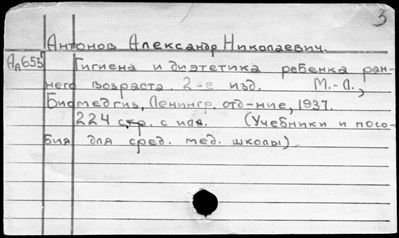 3
Антонов Александр Николаевич.
Аа653 Гигиена и диэтетика ребенка ран-
него возраста 2-е изд. М.-Л.,
Биомедгиз, Ленингр. отд-ние, 1937.
224 стр. с илл. (Учебники и посо-
бия для сред. мед. школы).